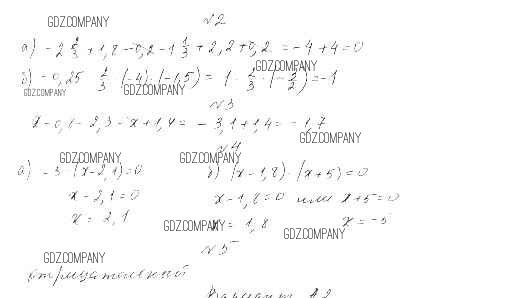 GDZ.COMPANY №2
а) -2 2/3 + 1,8 - 0,2 - 1 1/3 + 2,2 + 0,2 = -4 + 4 = 0
GDZ.COMPANY
б) -0,25 · 2/3 · (-4) · (-1,5) = 1 · 2/3 · (-3/2) = -1
GDZ.COMPANY GDZ.COMPANY
№3
x - 0,1 - 2,3 - x + 1,4 = -3,1 + 1,4 = -1,7
GDZ.COMPANY
№4
GDZ.COMPANY GDZ.COMPANY
а) -3 · (x - 2,1) = 0 б) (x - 1,8) · (x + 5) = 0
x - 2,1 = 0 x - 1,8 = 0 или x + 5 = 0
x = 2,1 x = 1,8 x = -5
GDZ.COMPANY GDZ.COMPANY
№5
GDZ.COMPANY
отрицательной
Вариант А2